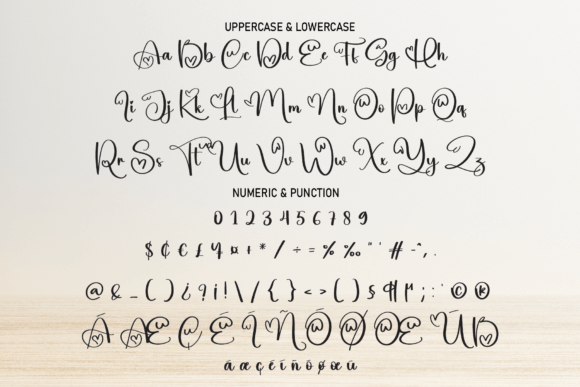 UPPERCASE & LOWERCASE
Aa Bb Cc Dd Ee Ff Gg Hh
Ii Jj Kk Ll Mm Nn Oo Pp Qq
Rr Ss Tt Uu Vv Ww Xx Yy Zz
NUMERIC & PUNCTION
0 1 2 3 4 5 6 7 8 9
$ ¢ € £ ¥ ¤ + * / ÷ = % ‰ " ' # - ^ , .
@ & _ ( ) ¿ ? ¡ ! \ / { } < > ( ) § ¶ µ ; : © ®
Á Æ Ç É Í Ñ Ó Ø Œ Ú ß
á æ ç é í ñ ó ø œ ú